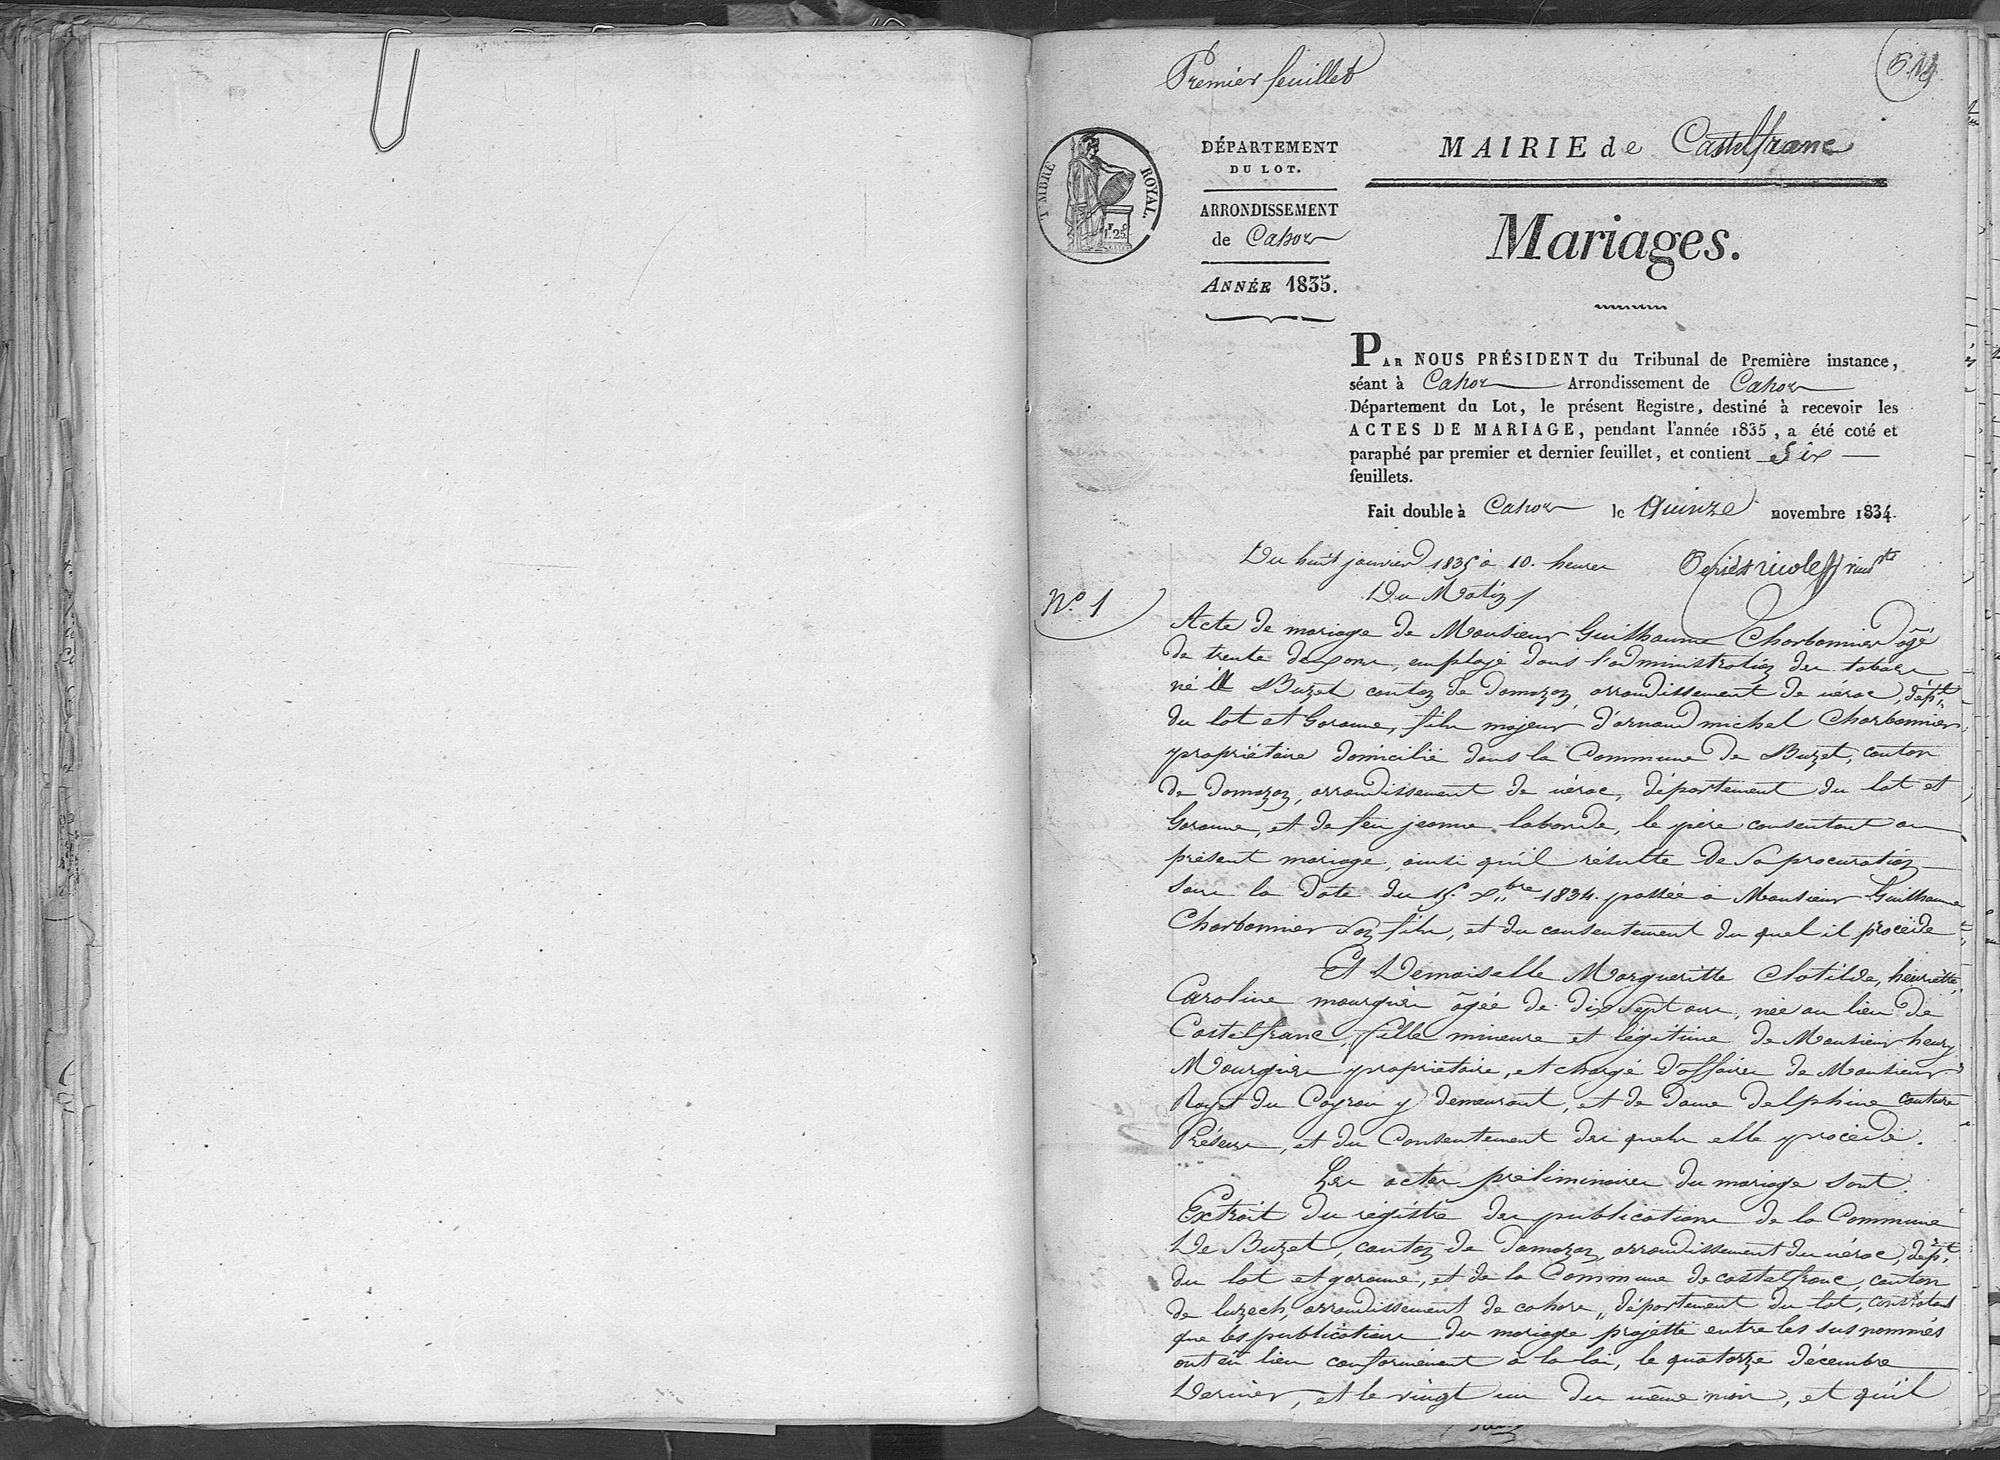 Premier feuillet
TIMBRE ROYAL.
1.F 25.C
DÉPARTEMENT
DU LOT.
ARRONDISSEMENT
de Cahors
ANNÉE 1835.
MAIRIE de Castelfranc
Mariages.
PAR NOUS PRÉSIDENT du Tribunal de Première instance,
séant à Cahors Arrondissement de Cahors
Département du Lot, le présent Registre, destiné à recevoir les
ACTES DE MARIAGE, pendant l'année 1835, a été coté et
paraphé par premier et dernier feuillet, et contient Six
feuillets.
Fait double à Cahors le Quinze novembre 1834.
Du huit janvier 1835 à 10. heures
Du Matin
N.o 1
Acte de mariage de Monsieur Guilhaume Charbonnier âgé
de trente deux ans, employé dans l'administration des tabacs
né à Buzet canton de Damazan, arrondissement de nérac, dépt
du lot et Garonne, fils majeur d'arnaud michel Charbonnier,
propriétaire domicilié dans la Commune de Buzet, canton
de Damazan, arrondissement de nérac, département du lot et
Garonne, et de feu jeanne laborde, le père consentant au
présent mariage, ainsi qu'il résulte de sa procuration
sous la date du 15. Xbre 1834. passée à Monsieur Guilhaume
Charbonnier son fils, et du consentement du quel il procède
Et Demoiselle Margueritte Clotilde, henriette,
Caroline mourguès âgée de dix sept ans, née au lieu de
Castelfranc, fille mineure et légitime de Monsieur henry
Mourguès propriétaire, et chargé d'affaires de Monsieur
du y demeurant, et de dame delphine couture
Présens, et du Consentement des quels elle procède.
Les actes préliminaires du mariage sont
Extrait du régistre des publications de la Commune
De Buzet, canton de Damazan, arrondissement du nérac, dépt.
du lot et garonne, et de la Commune de castelfranc, canton
de luzech, arrondissement de cahors, département du lot, constatant
que les publications du mariage projetté entre les sus nommés
ont eu lieu conformément à la loi, le quatorze décembre
Dernier, et le vingt un du même mois, et qu'il